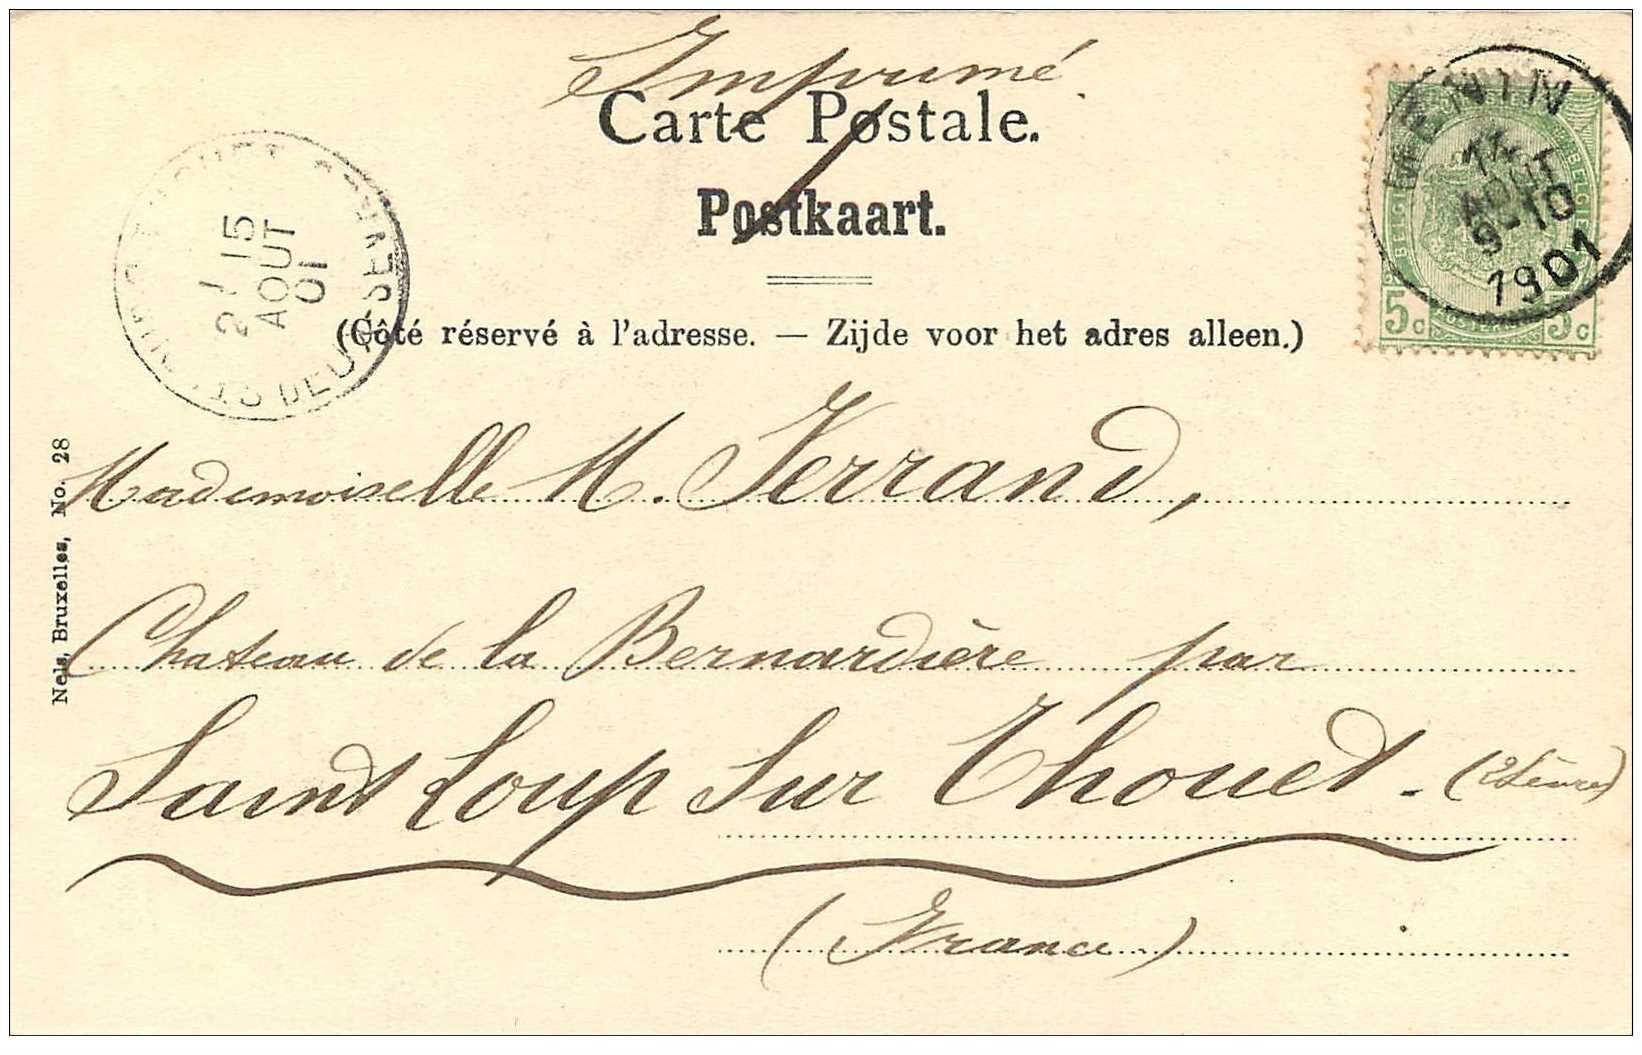 Imprimé
Carte Postale.
Postkaart.
(Côté réservé à l'adresse. — Zijde voor het adres alleen.)
MENIN
14
AOUT
9-10
1901
BELGIE
5c 5c
15
AOUT
01
DEUX-SEVRES
Nels, Bruxelles, No. 28
Mademoiselle M. Ferrand,
Chateau de la Bernardière par
Saint Loup Sur Thouet. (2 Sèvres)
(France)